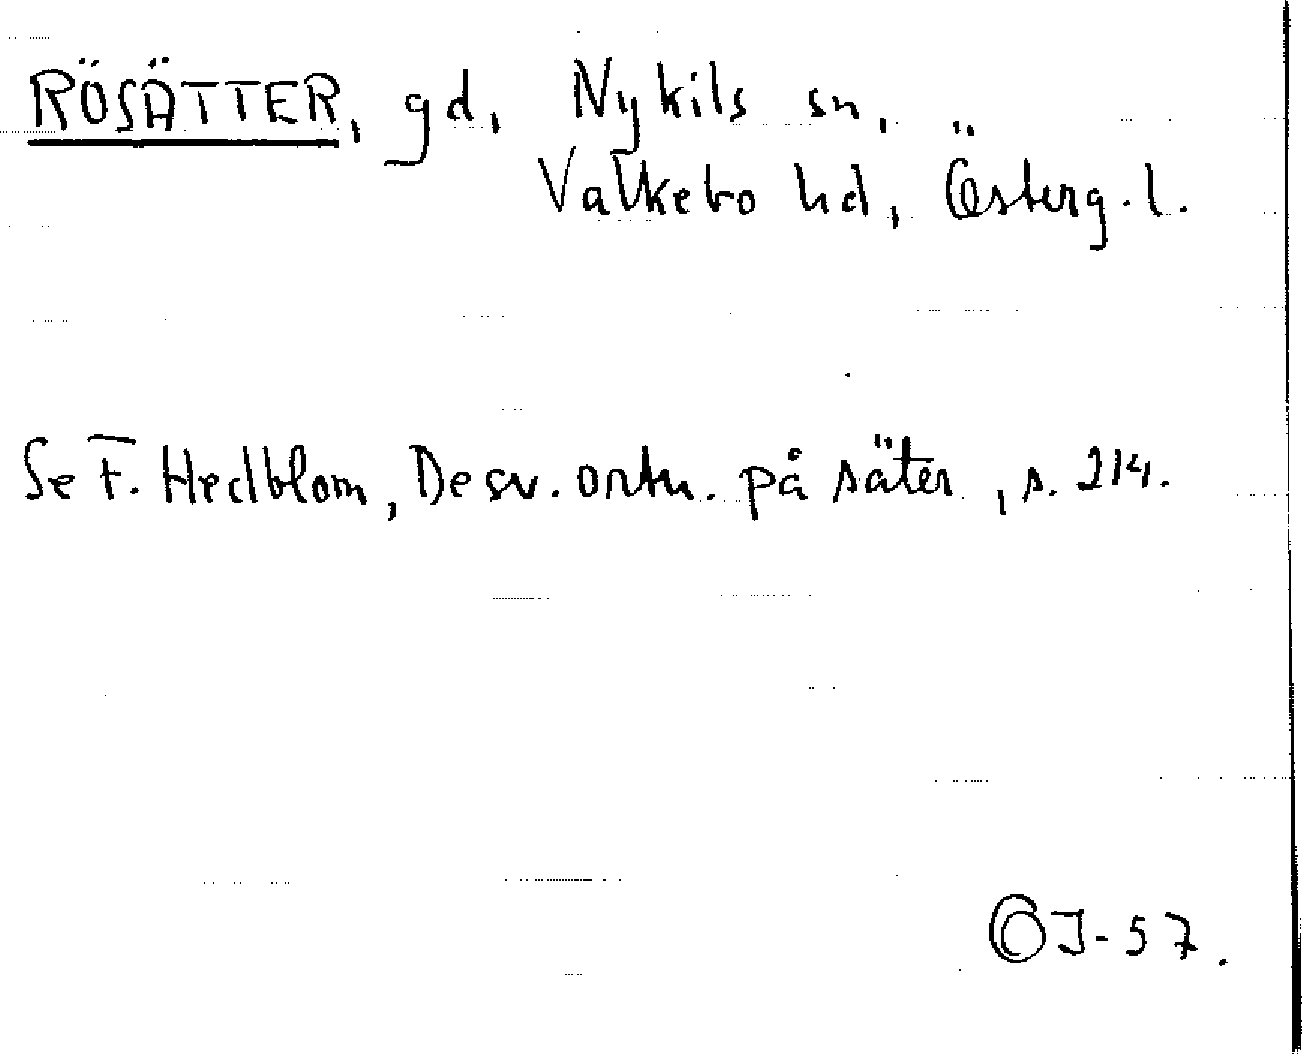 RÖSÄTTER, gd, Nykils sn,
Valkebo hd, Österg.l.
Se F. Hedblom, De sv. ortn. på säter, s. 214.
OJ-57.